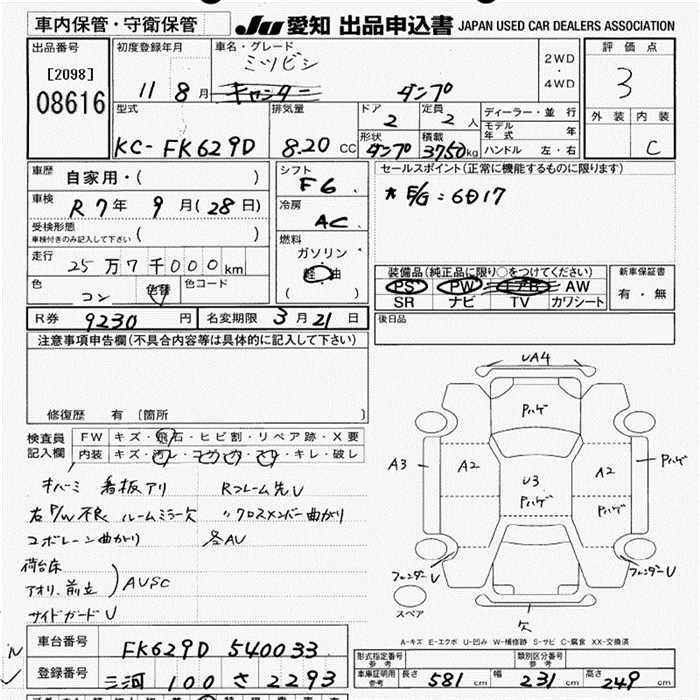 車内保管・守衛保管
JU 愛知 出品申込書 JAPAN USED CAR DEALERS ASSOCIATION
出品番号
[2098]
08616
初度登録年月
11 8月
車名・グレード
ミツビシ
キャンター ダンプ
2WD
・
4WD
評価点
3
外装 内装
C
型式
KC-FK629D
排気量
8.20 CC
ドア
2
定員
2人
形状
ダンプ
積載
3750kg
ディーラー・並行
モデル年式 年
ハンドル 左・右
車歴 自家用・( )
車検 R7年 9月(28日)
受検形態
車検付きのみ記入して下さい ( )
走行 25万7千000km
色 コン 色替 色コード
シフト
F6
冷房
AC
燃料
ガソリン
軽油
( )
セールスポイント(正常に機能するものに限ります)
* E/G:6D17
装備品(純正品に限り○をつけてください)
PS PW エアB AW
SR ナビ TV カワシート
新車保証書
有・無
後日品
R券 9230円 名変期限 3月21日
注意事項申告欄(不具合内容等は具体的に記入して下さい)
修復歴 有(箇所 )
検査員
記入欄
FW キズ・飛石・ヒビ割・リペア跡・X要
内装 キズ・汚レ・コゲ・穴・スレ・キレ・破レ
キバミ 看板アリ Rフレーム先U
右P/W不良 ルームミラー欠 〃クロスメンバー曲がり
コボレーン曲がり 各AU
荷台床
アオリ.前立 )AUSC
サイドガードU
UA4
Pハゲ
A3
A2
U3
Pハゲ
A2
Pハゲ
Pハゲ
フェンダーU
フェンダーU
スペア
欠
A-キズ E-エクボ U-凹み W-補修跡 S-サビ C-腐食 XX-交換済
車台番号 FK629D 540033
登録番号 三河 100 さ 2293
形式指定番号
参考
類別区分番号
参考
車庫証明用
参考
長さ 581cm 幅 231cm 高さ 249cm